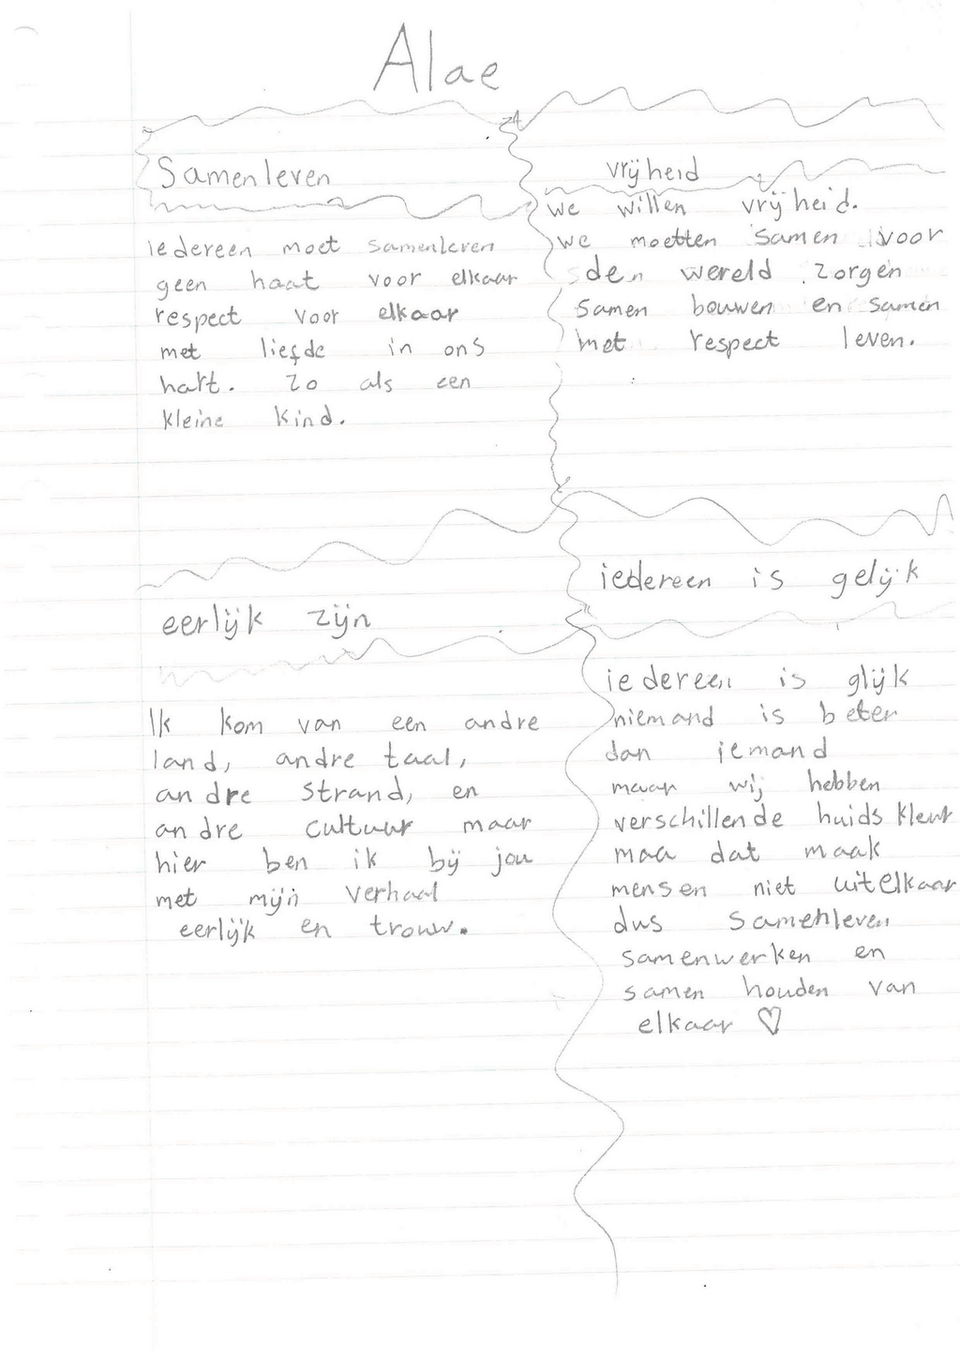 Alae
Samenleven
iedereen moet samenleven
geen haat voor elkaar
respect voor elkaar
met liefde in ons
hart. zo als een
kleine kind.
vrijheid
we willen vrijheid.
we moetten samen voor
den wereld zorgen
samen bouwen en samen
met respect leven.
eerlijk zijn
Ik kom van een andre
land, andre taal,
andre strand, en
andre cultuur maar
hier ben ik bij jou
met mijn verhaal
eerlijk en trouw.
iedereen is gelijk
iedereen is glijk
niemand is beter
dan iemand
maar wij hebben
verschillende huids kleur
maa dat maak
mensen niet uitelkaar
dus samenleven
samenwerken en
samen houden van
elkaar ♡